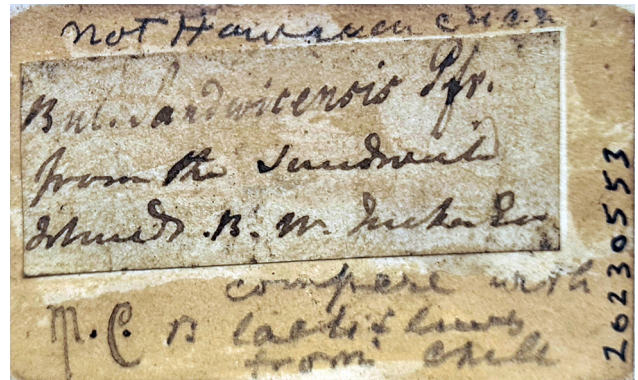 not Hawaiian
Bul. Sandwicensis Pfr.
from the Sandwich
Islands. B. W.
compare with
M.C. B
from Chili
20230553